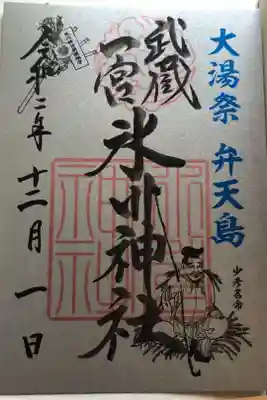 大湯祭 弁天島
武蔵
一宮
氷川神社
少彦名命
令和二年 十二月 一日